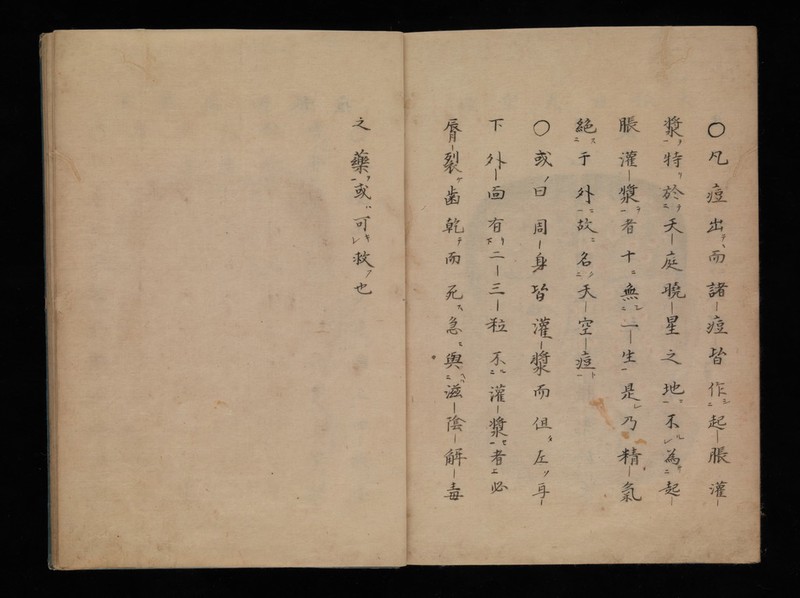 〇凡痘出而諸痘皆作起脹灌
漿特於天庭曉星之地不為起
脹灌漿者十無一生是乃精氣
絶于外故名天空痘
〇或曰周身皆灌漿而但左耳
下外面有二三粒不灌漿者必
脣裂齒乾而死急與滋陰解毒
之藥或可救也